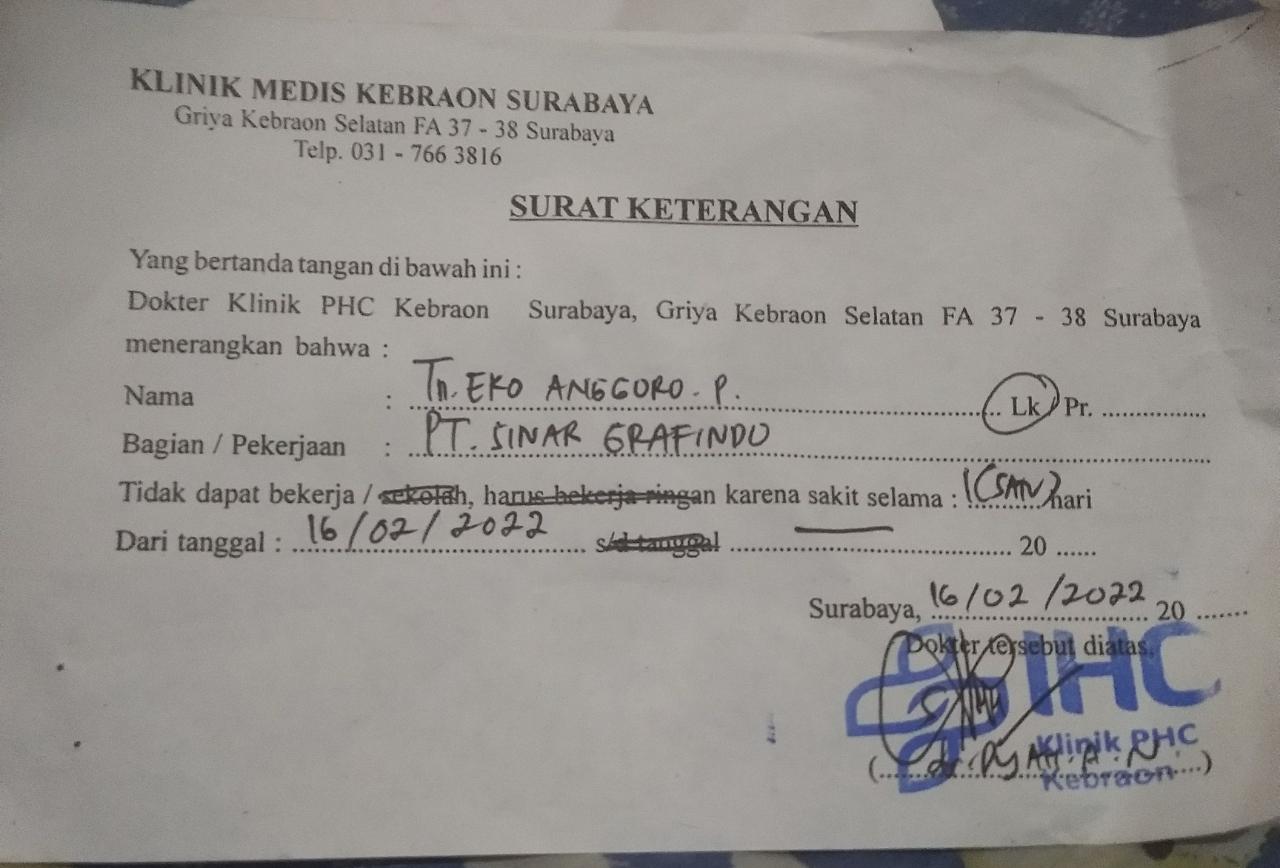 KLINIK MEDIS KEBRAON SURABAYA
Griya Kebraon Selatan FA 37 - 38 Surabaya
Telp. 031 - 766 3816
SURAT KETERANGAN
Yang bertanda tangan di bawah ini :
Dokter Klinik PHC Kebraon Surabaya, Griya Kebraon Selatan FA 37 - 38 Surabaya
menerangkan bahwa :
Nama : Tn. EKO ANGGORO. P. Lk / Pr.
Bagian / Pekerjaan : PT. SINAR GRAFINDO
Tidak dapat bekerja / sekolah, harus bekerja ringan karena sakit selama : 1 (SATU) hari
Dari tanggal : 16/02/2022 s/d tanggal — 20 ......
Surabaya, 16/02/2022 20 .......
Dokter tersebut diatas,
IHC
Klinik PHC
Kebraon
(dr. DYAH. A. N)